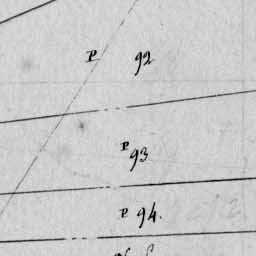 P 92
P 93
P 94.